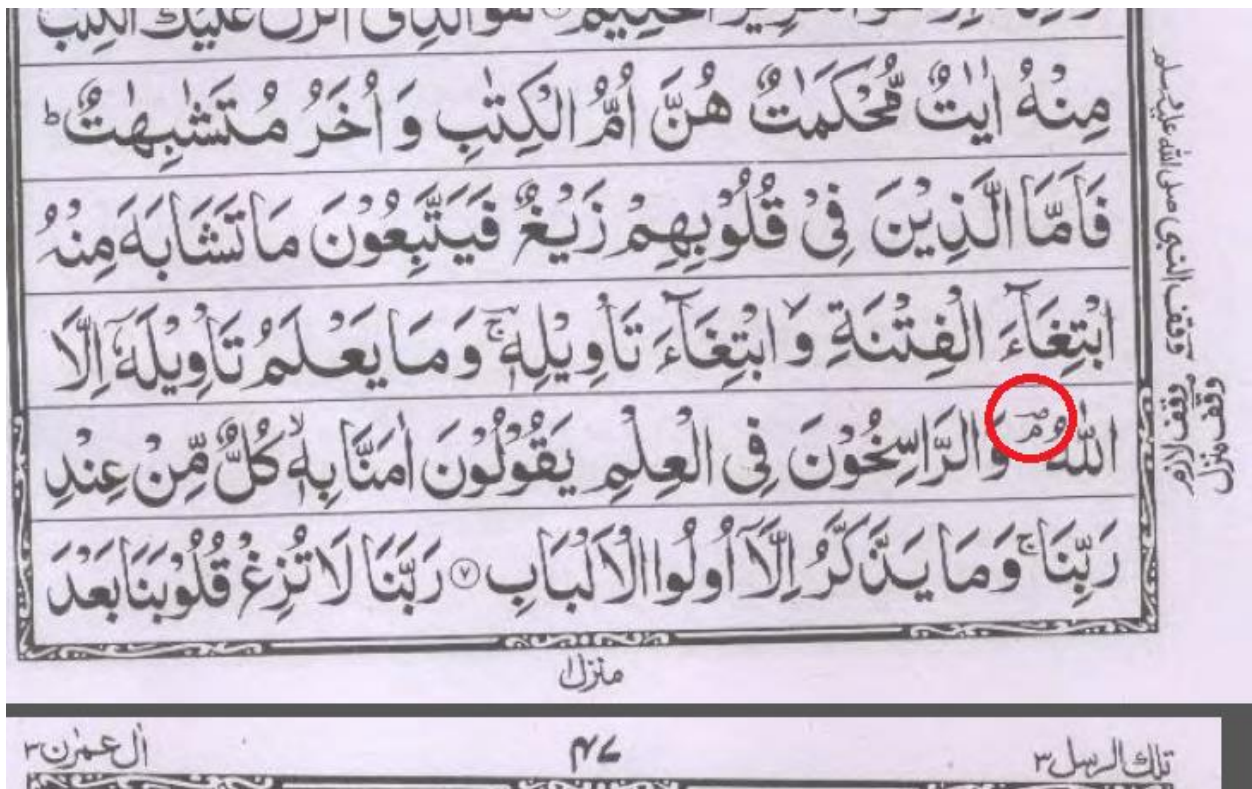 هُوَ الَّذِىْٓ اَنْزَلَ عَلَيْكَ الْكِتٰبَ
مِنْهُ اٰيٰتٌ مُّحْكَمٰتٌ هُنَّ اُمُّ الْكِتٰبِ وَ اُخَرُ مُتَشٰبِهٰتٌ ؕ
فَاَمَّا الَّذِيْنَ فِىْ قُلُوْبِهِمْ زَيْغٌ فَيَتَّبِعُوْنَ مَا تَشَابَهَ مِنْهُ
ابْتِغَآءَ الْفِتْنَةِ وَ ابْتِغَآءَ تَاْوِيْلِهٖ ۚ وَمَا يَعْلَمُ تَاْوِيْلَهٗٓ اِلَّا
اللّٰهُ ۘ وَ الرَّاسِخُوْنَ فِى الْعِلْمِ يَقُوْلُوْنَ اٰمَنَّا بِهٖ ۙ كُلٌّ مِّنْ عِنْدِ
رَبِّنَا ۚ وَمَا يَذَّكَّرُ اِلَّاۤ اُولُوا الْاَلْبَابِ ۝۷ رَبَّنَا لَا تُزِغْ قُلُوْبَنَا بَعْدَ
وقف النبی صلی اللہ علیہ وسلم
وقف لازم
وقف منزل
منزل ۱
تلك الرسل ۳
۴۷
اٰل عمرٰن ۳